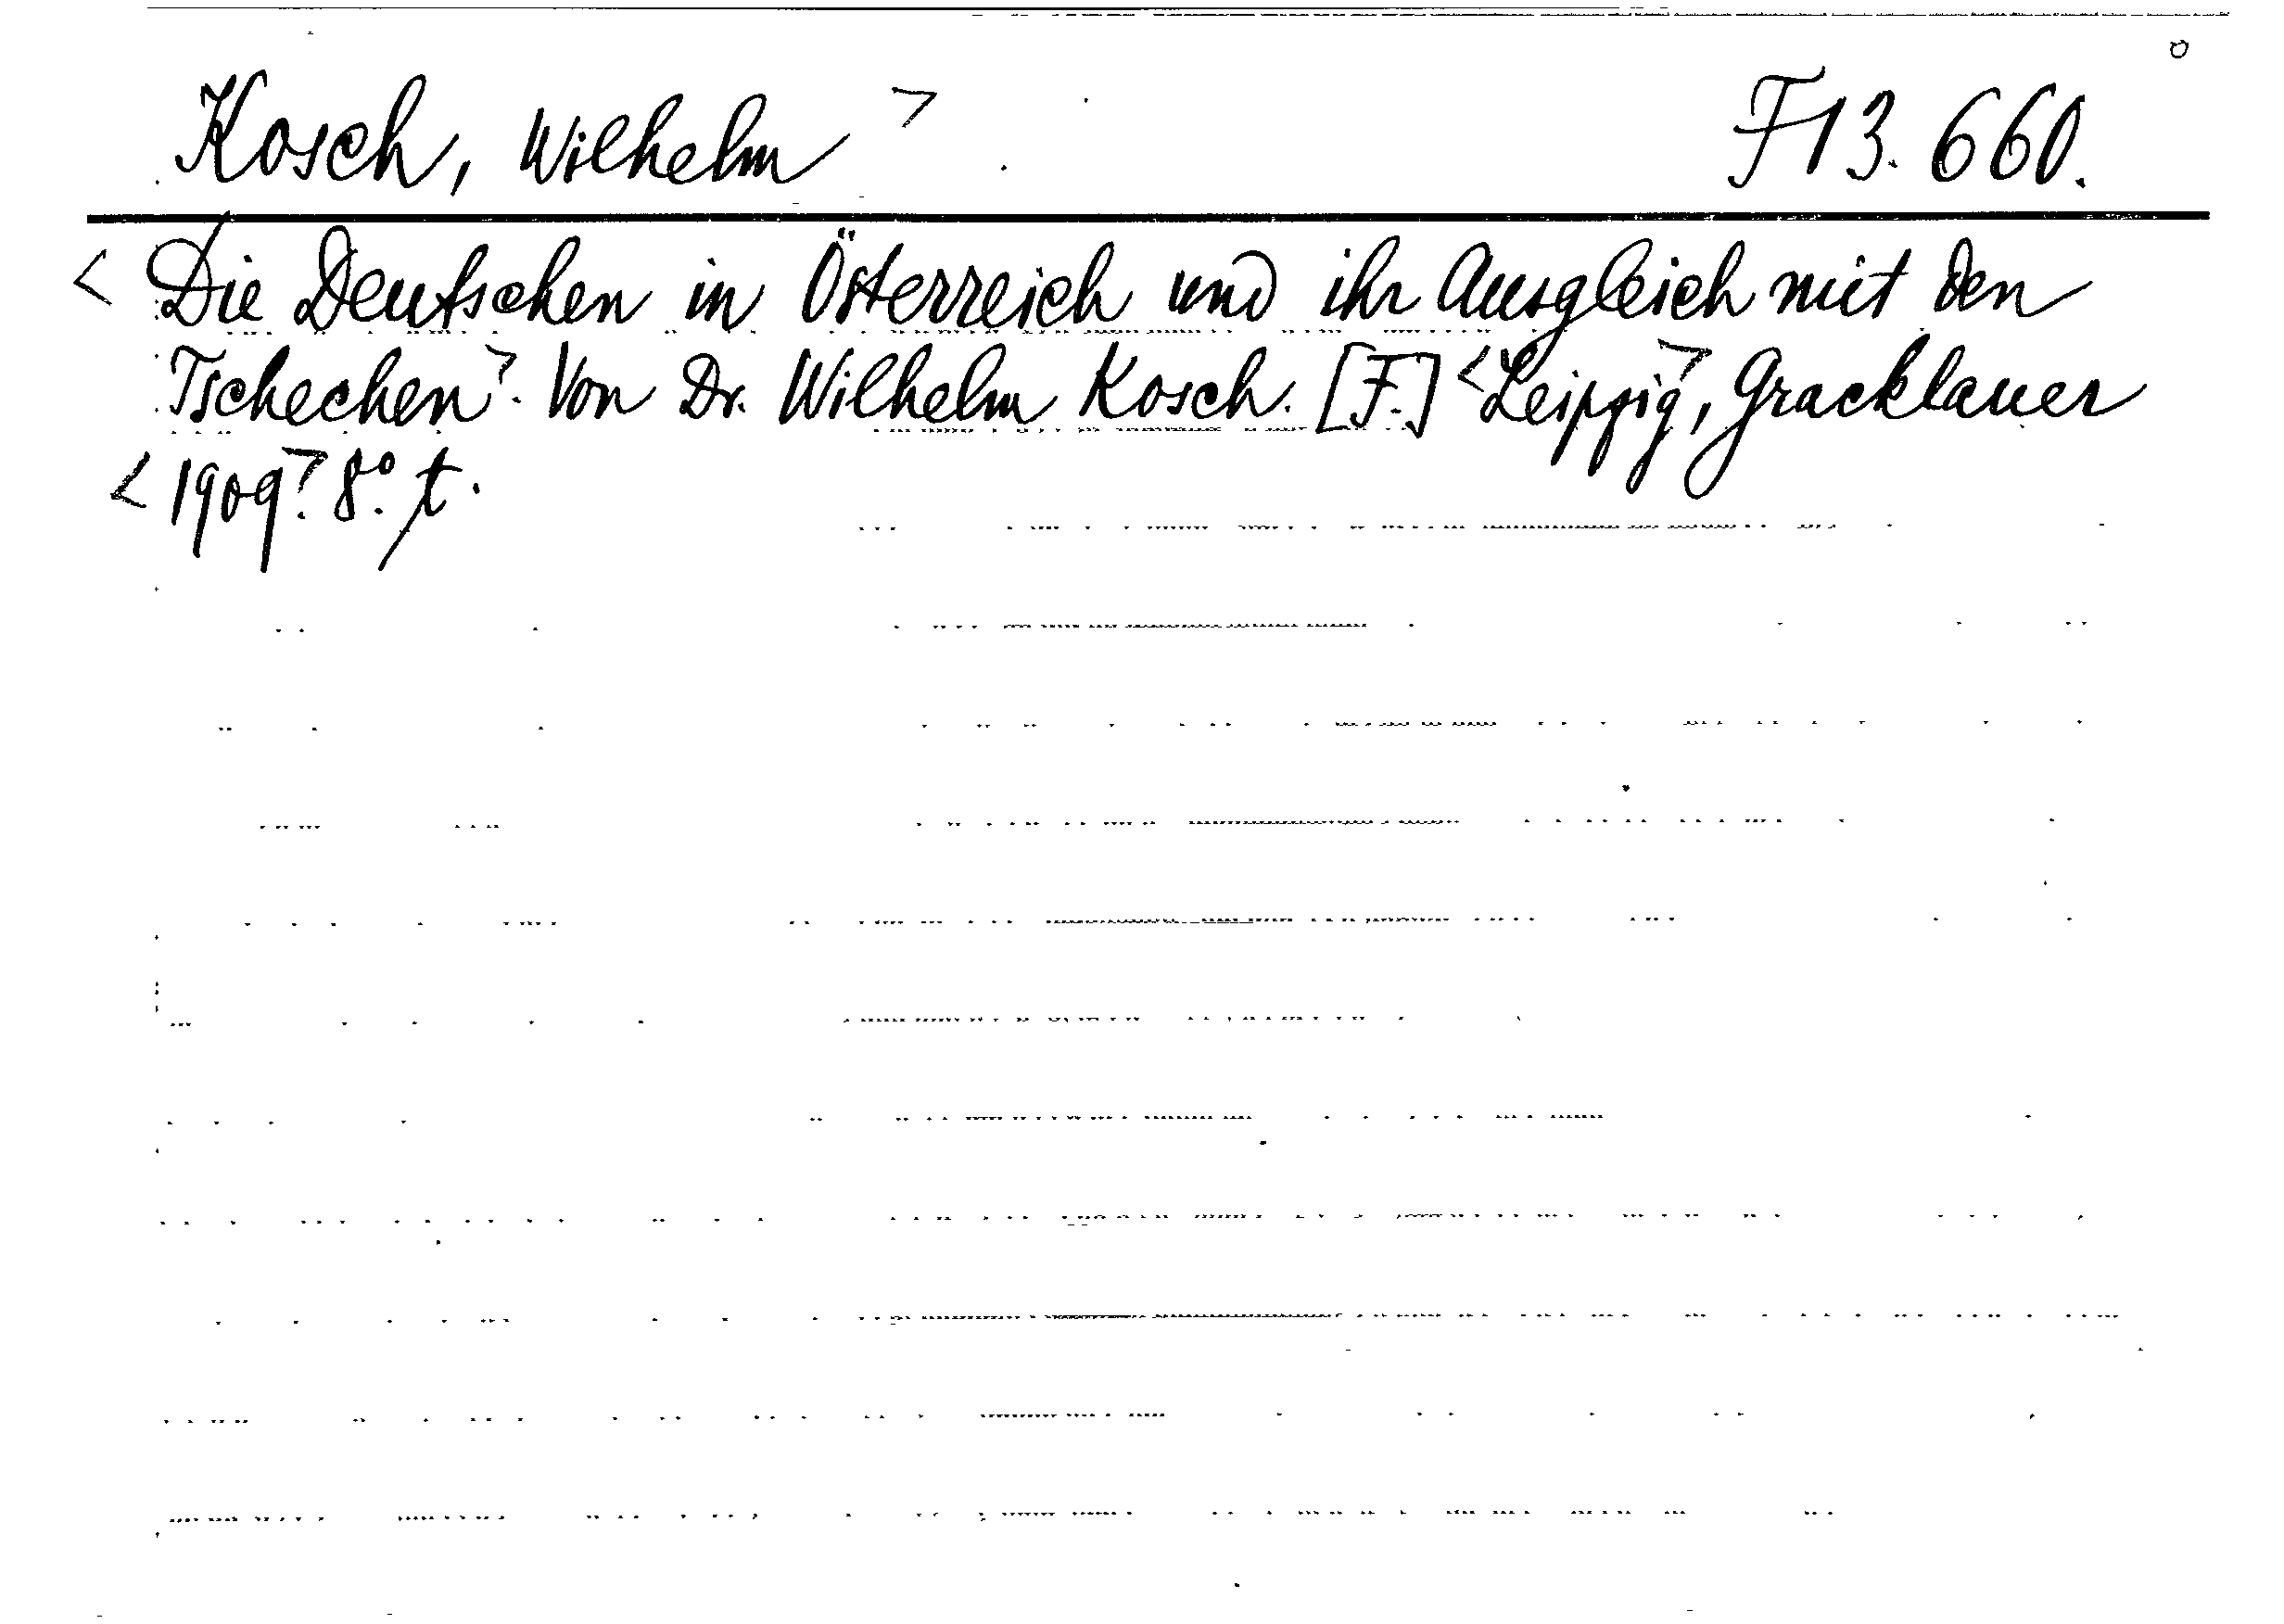 Kosch, Wilhelm > F13.660.
< Die Deutschen in Österreich und ihr Ausgleich mit den
Tschechen>. Von Dr. Wilhelm Kosch. [F.] <Leipzig>, Gracklauer
< 1909>. 8°. t.